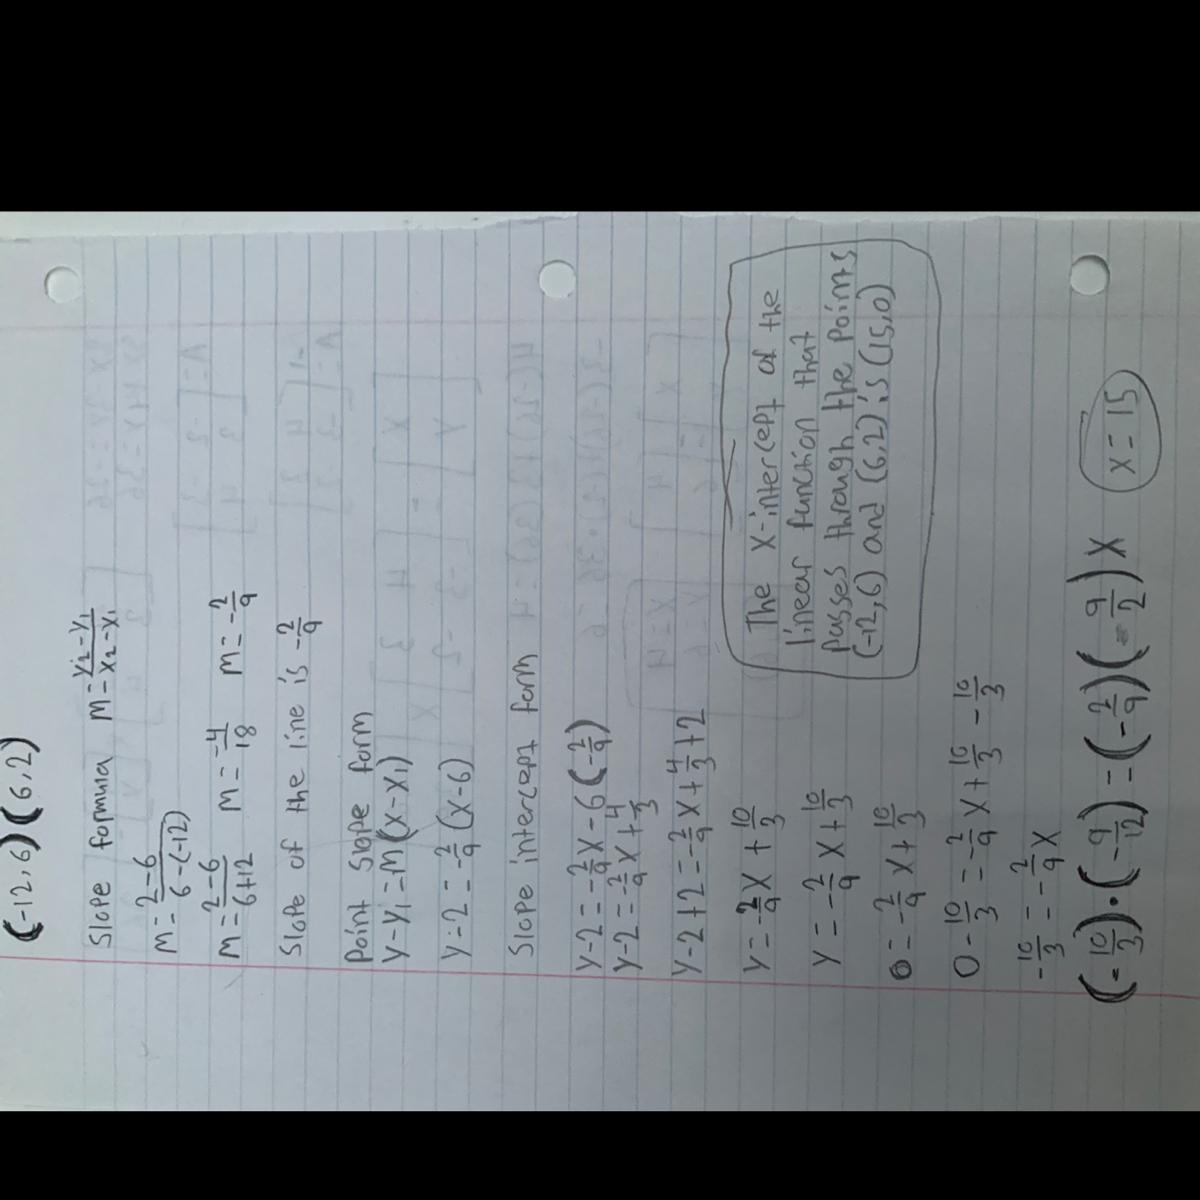 (-12,6)(6,2)
Slope formula M = y₂-y₁/x₂-x₁
M = 2-6/6-(-12)
M = 2-6/6+12 M = -4/18 M = -2/9
Slope of the line is -2/9
Point Slope form
y-y₁=m(x-x₁)
y-2=-2/9(x-6)
Slope intercept form
y-2=-2/9x-6(-2/9)
y-2=-2/9x+4/3
y-2+2=-2/9x+4/3+2
y=-2/9x+10/3
y=-2/9x+10/3
0=-2/9x+10/3
0-10/3=-2/9x+10/3-10/3
-10/3=-2/9x
(-10/3)·(-9/12)=(-2/9)(-9/2)x x=15
The x-intercept of the
linear function that
passes through the points
(-12,6) and (6,2) is (15,0)